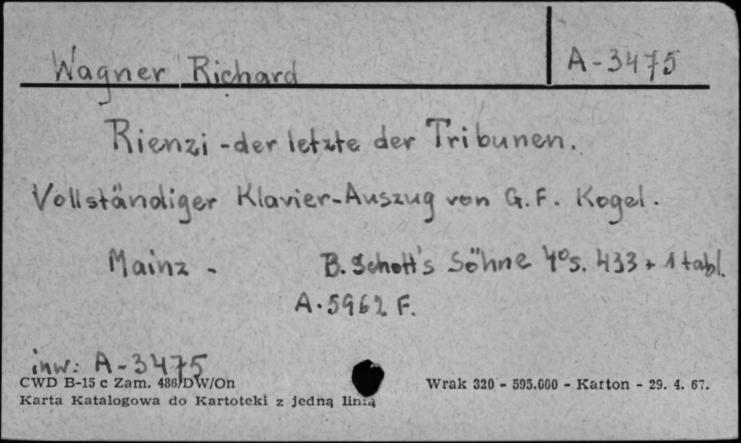 Wagner Richard A-3475
Rienzi - der letzte der Tribunen.
Vollständiger Klavier-Auszug von G. F. Kogel.
Mainz - B. Schott's Söhne 4° s. 433 + 1 tabl.
A. 5962 F.
inw: A-3475
CWD B-15 c Zam. 486/DW/On Wrak 320 - 595.000 - Karton - 29. 4. 67.
Karta Katalogowa do Kartoteki z jedną linią